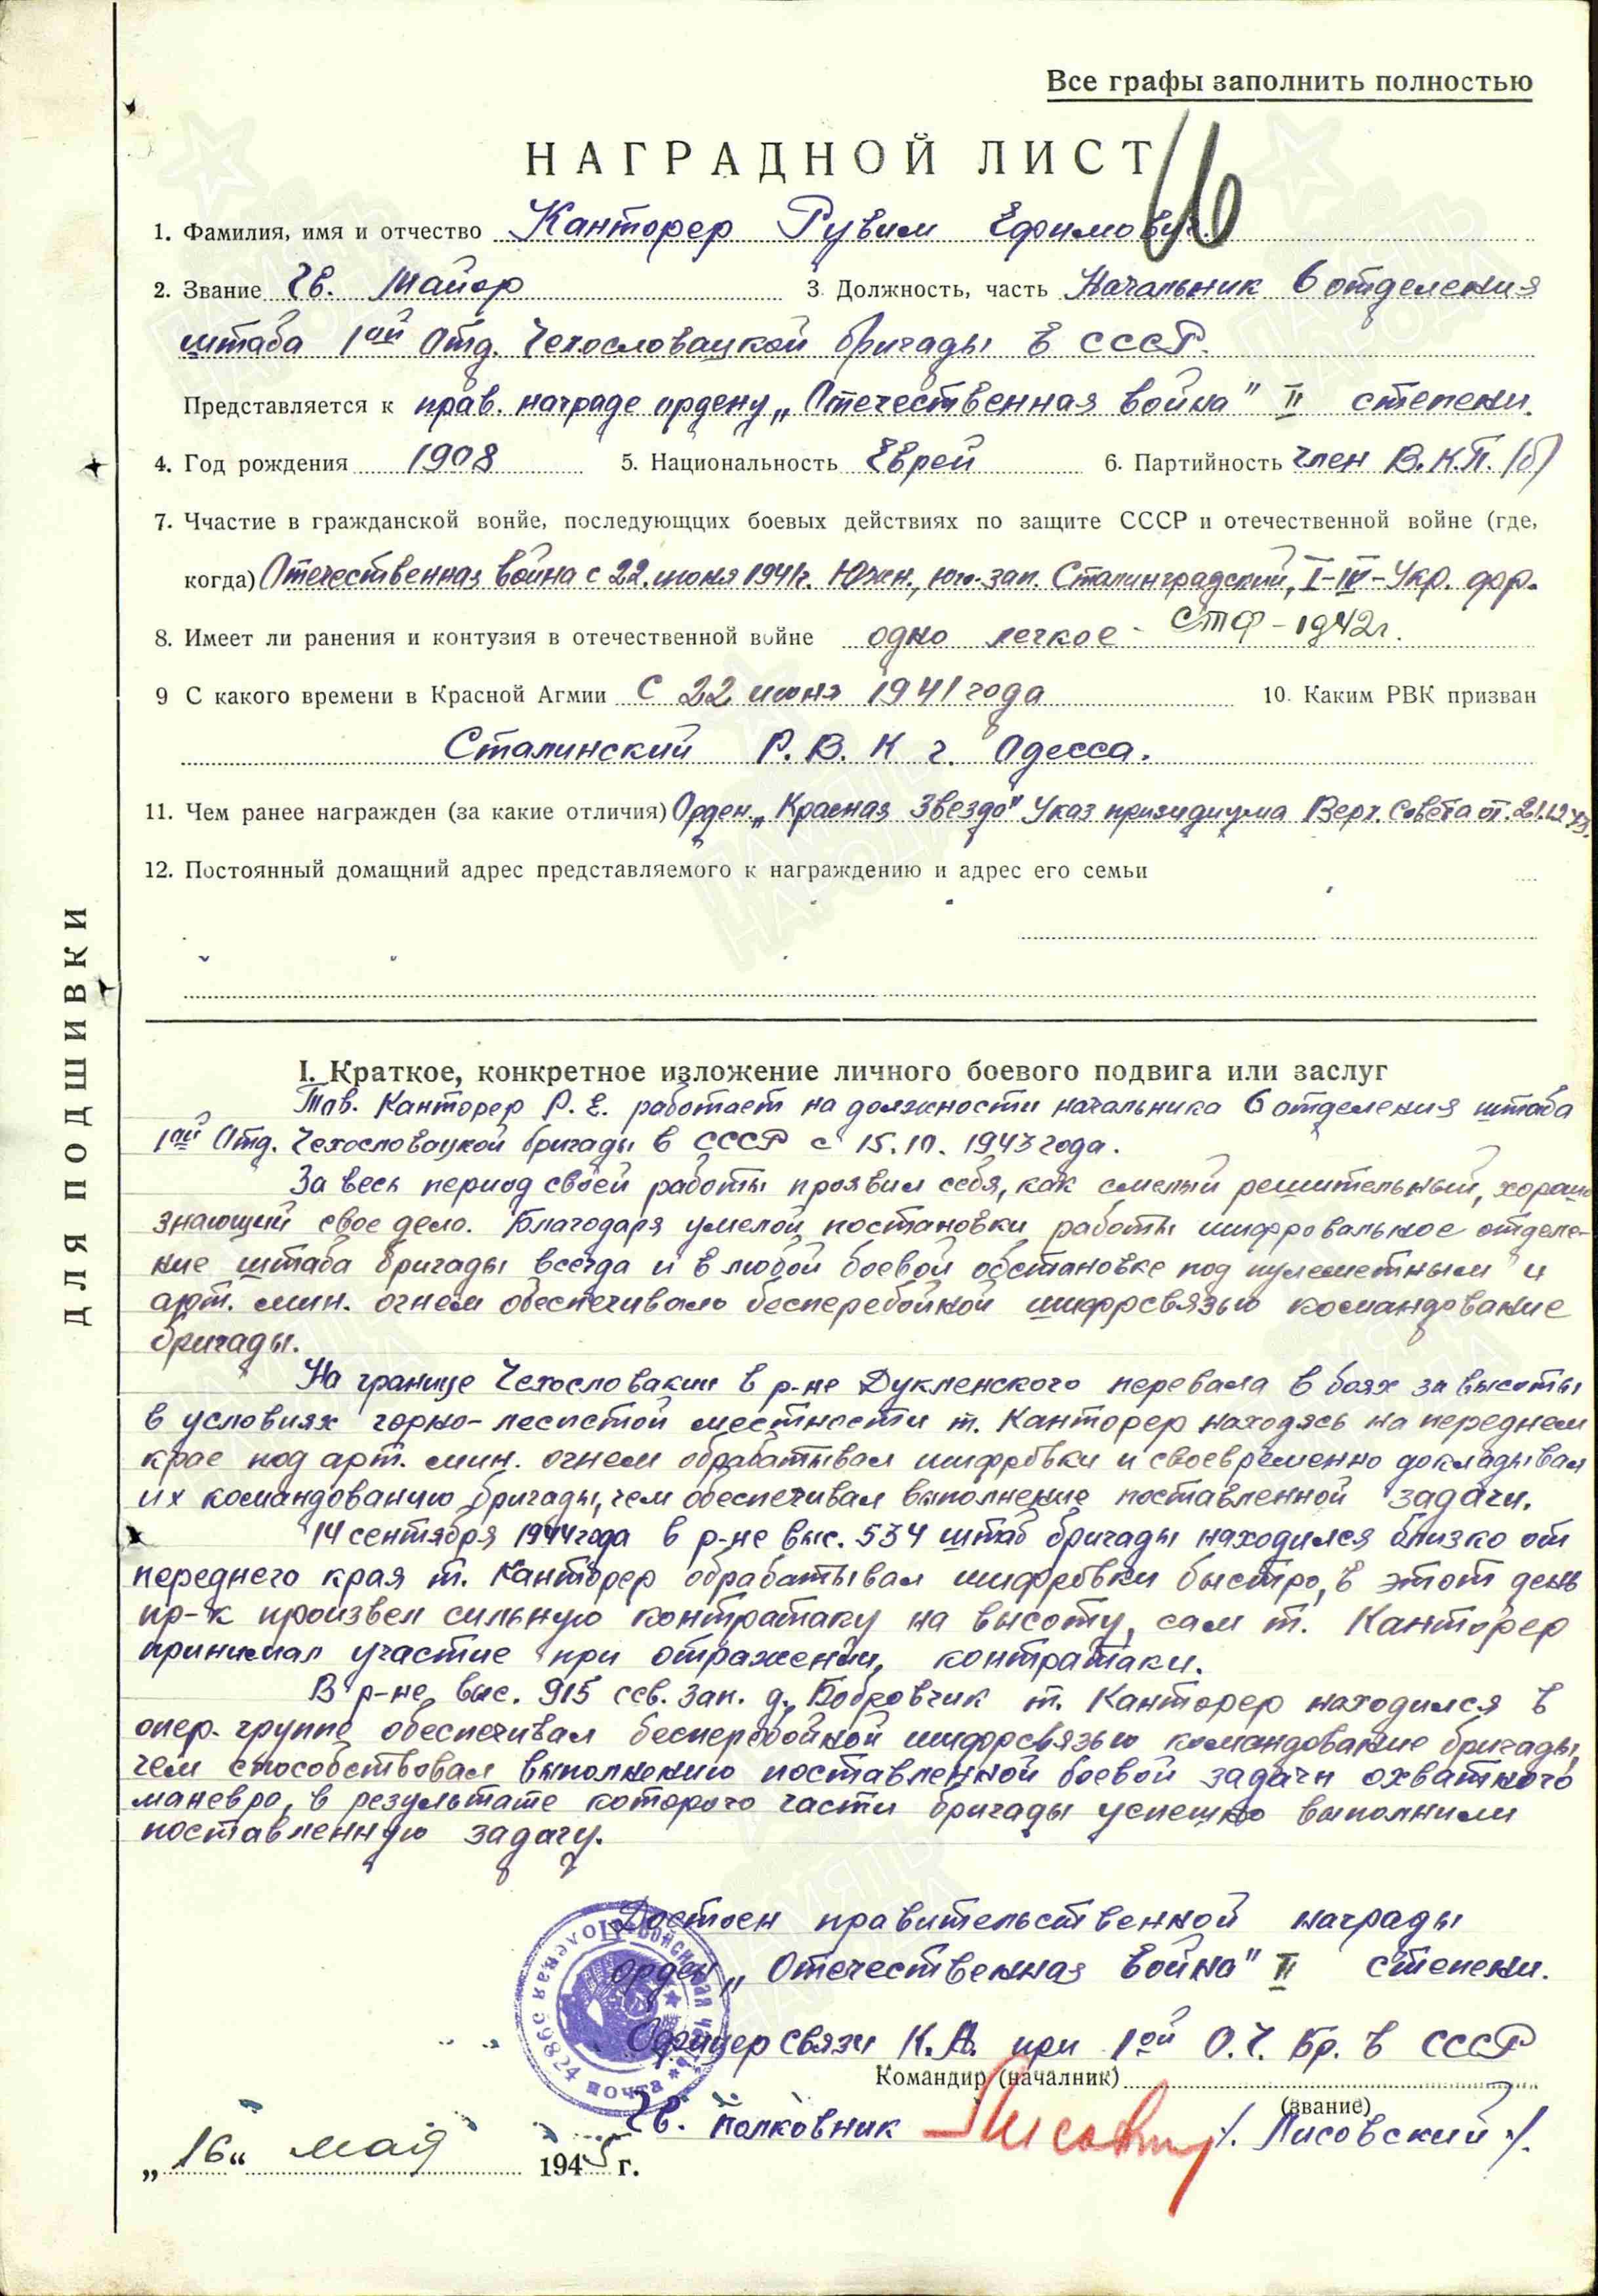 Все графы заполнить полностью
НАГРАДНОЙ ЛИСТ
16
1. Фамилия, имя и отчество Канторер Рувим Ефимович.
2. Звание Гв. Майор 3. Должность, часть Начальник 6 отделения
штаба 1ой Отд. Чехословацкой бригады в СССР.
Представляется к прав. награде ордену „Отечественная война" II степени.
4. Год рождения 1908 5. Национальность Еврей 6. Партийность член В.К.П.(б)
7. Ччастие в гражданской вонйе, последующцих боевых действиях по защите СССР и отечественной войне (где,
когда) Отечественная война с 22. июня 1941г. Южн., юго-зап. Сталинградский, I-IV-Укр. фр.
8. Имеет ли ранения и контузия в отечественной войне одно легкое - СТФ - 1942г.
9 С какого времени в Красной Агмии С 22 июня 1941 года 10. Каким РВК призван
Сталинский Р.В.К г. Одесса.
11. Чем ранее награжден (за какие отличия) Орден „Красная Звезда" Указ президиума Верх. Совета от. 21.12.43.
12. Постоянный домащний адрес представляемого к награждению и адрес его семьи
ДЛЯ ПОДШИВКИ
I. Краткое, конкретное изложение личного боевого подвига или заслуг
Тов. Канторер Р. Е. работает на должности начальника 6 отделения штаба
1ой Отд. Чехословацкой бригады в СССР с 15.10. 1943 года.
За весь период своей работы проявил себя, как смелый решительный, хорошо
знающий свое дело. Благодаря умелой постановки работы шифровальное отделе-
ние штаба бригады всегда и в любой боевой обстановке под пулеметным и
арт. мин. огнем обеспечивало бесперебойной шифрсвязью командование
бригады.
На границе Чехословакии в р-не Дукленского перевала в боях за высоты
в условиях горно-лесистой местности т. Канторер находясь на переднем
крае под арт. мин. огнем обрабатывал шифровки и своевременно докладывал
их командованию бригады, чем обеспечивал выполнение поставленной задачи.
14 сентября 1944 года в р-не выс. 534 штаб бригады находился близко от
переднего края т. Канторер обрабатывал шифровки быстро, в этот день
пр-к произвел сильную контратаку на высоту, сам т. Канторер
принимал участие при отражении, контратаки.
В р-не, выс. 915 сев. зап. д. Бобровчик т. Канторер находился в
опер. группе обеспечивал бесперебойной шифрсвязью командование бригады,
чем способствовал выполнению поставленной боевой задачи охватного
маневра, в результате которого части бригады успешно выполнили
поставленную задачу.
Достоен правительственной награды
орден „Отечественная война" II степени.
Офицер связи К.А. при 1ой О.Ч. Бр. в СССР
Командир (началник)
(звание)
Гв. полковник /. Лисовский ./.
„16" мая 1945 г.
Войсковая часть Полевая почта